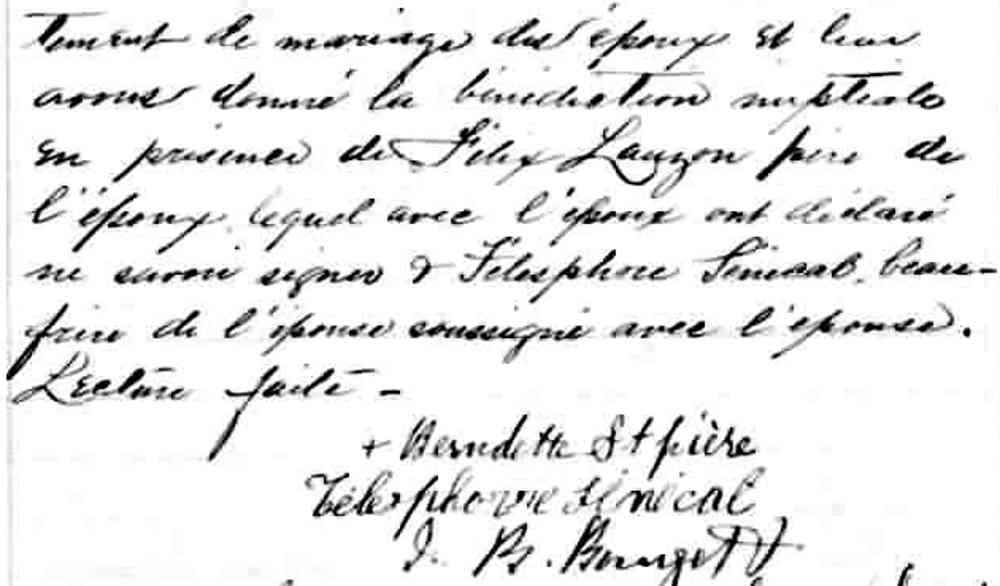 tement de mariage des époux et leur
avons donné la bénédiction nuptiale
en présence de Félix Lauzon père de
l'époux lequel avec l'époux ont déclaré
ne savoir signer & Télesphore Sénécal, beau-
frère de l'épouse soussigné avec l'épouse.
Lecture faite -
+ Berndette St pière
Télesphore Sénécal
J. B. Bourget